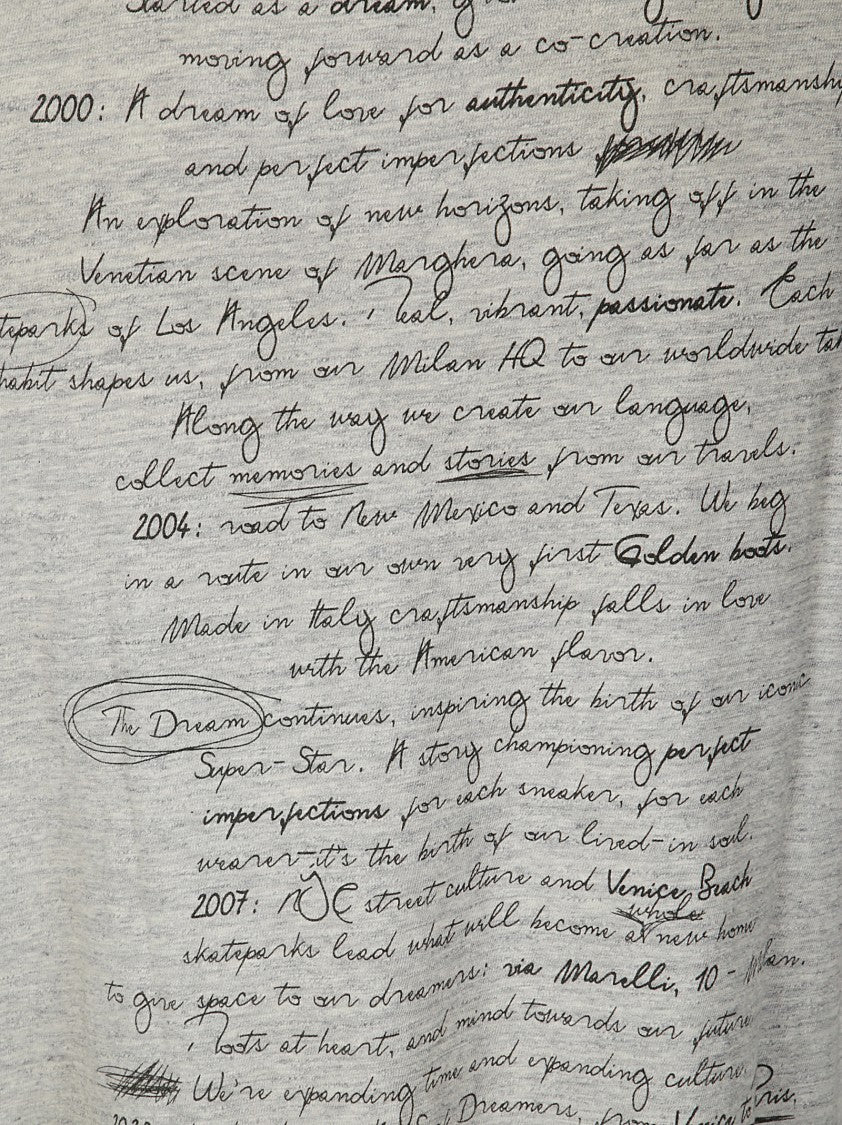 started as a dream,
moving forward as a co-creation.
2000: A dream of love for authenticity, craftsmanship
and perfect imperfections
An exploration of new horizons, taking off in the
Venetian scene of Marghera, going as far as the
teparks of Los Angeles. Real, vibrant, passionate. Each
habit shapes us, from our Milan HQ to our worldwide
Along the way we create our language,
collect memories and stories from our travels.
2004: road to New Mexico and Texas. We beg
in a route in our own very first Golden boots.
Made in Italy craftsmanship falls in love
with the American flavor.
The Dream continues, inspiring the birth of our iconic
Super-Star. A story championing perfect
imperfections for each sneaker, for each
wearer-it's the birth of our lived-in soul.
2007: NYC street culture and Venice Beach
whole
skateparks lead what will become a new home
to give space to our dreamers: via Marelli, 10 - Milan.
Roots at heart, and mind towards our future
We're expanding time and expanding culture.
Dreamers, from Venice to Paris.